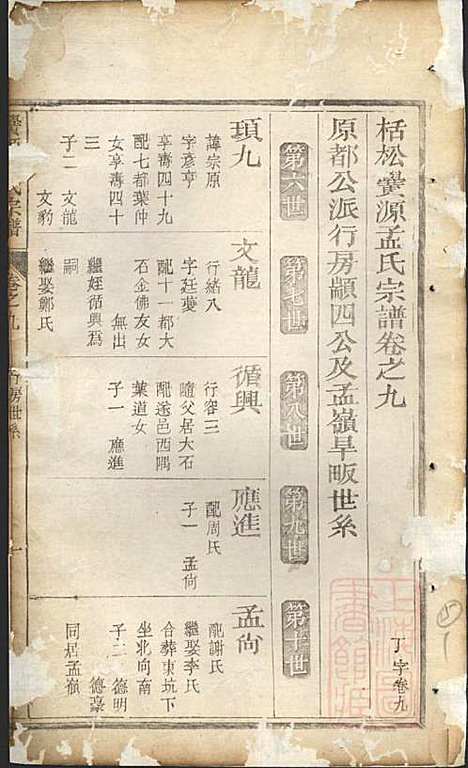 栝松黌源孟氏宗譜卷之九
丁字卷九
原都公派行房顓四公及孟嶺旱畈世系
第六世
第七世
第八世
第九世
第十世
頊九
諱宗原
字彥亨
享壽四十九
配七都葉仲
女享壽四十
三
子二 文龍
文豹
文龍
行緒八
字廷蔓
配十一都大
石金佛友女
無出
繼姪循興爲
嗣
繼娶鄭氏
循興
行容三
隨父居大石
配遂邑西隅
葉道女
子一 應進
應進
配周氏
子一 孟尙
孟尙
配謝氏
繼娶李氏
合葬東坑下
坐北向南
子二 德明
德豪
同居孟嶺
氏宗譜
卷之九
行房世系